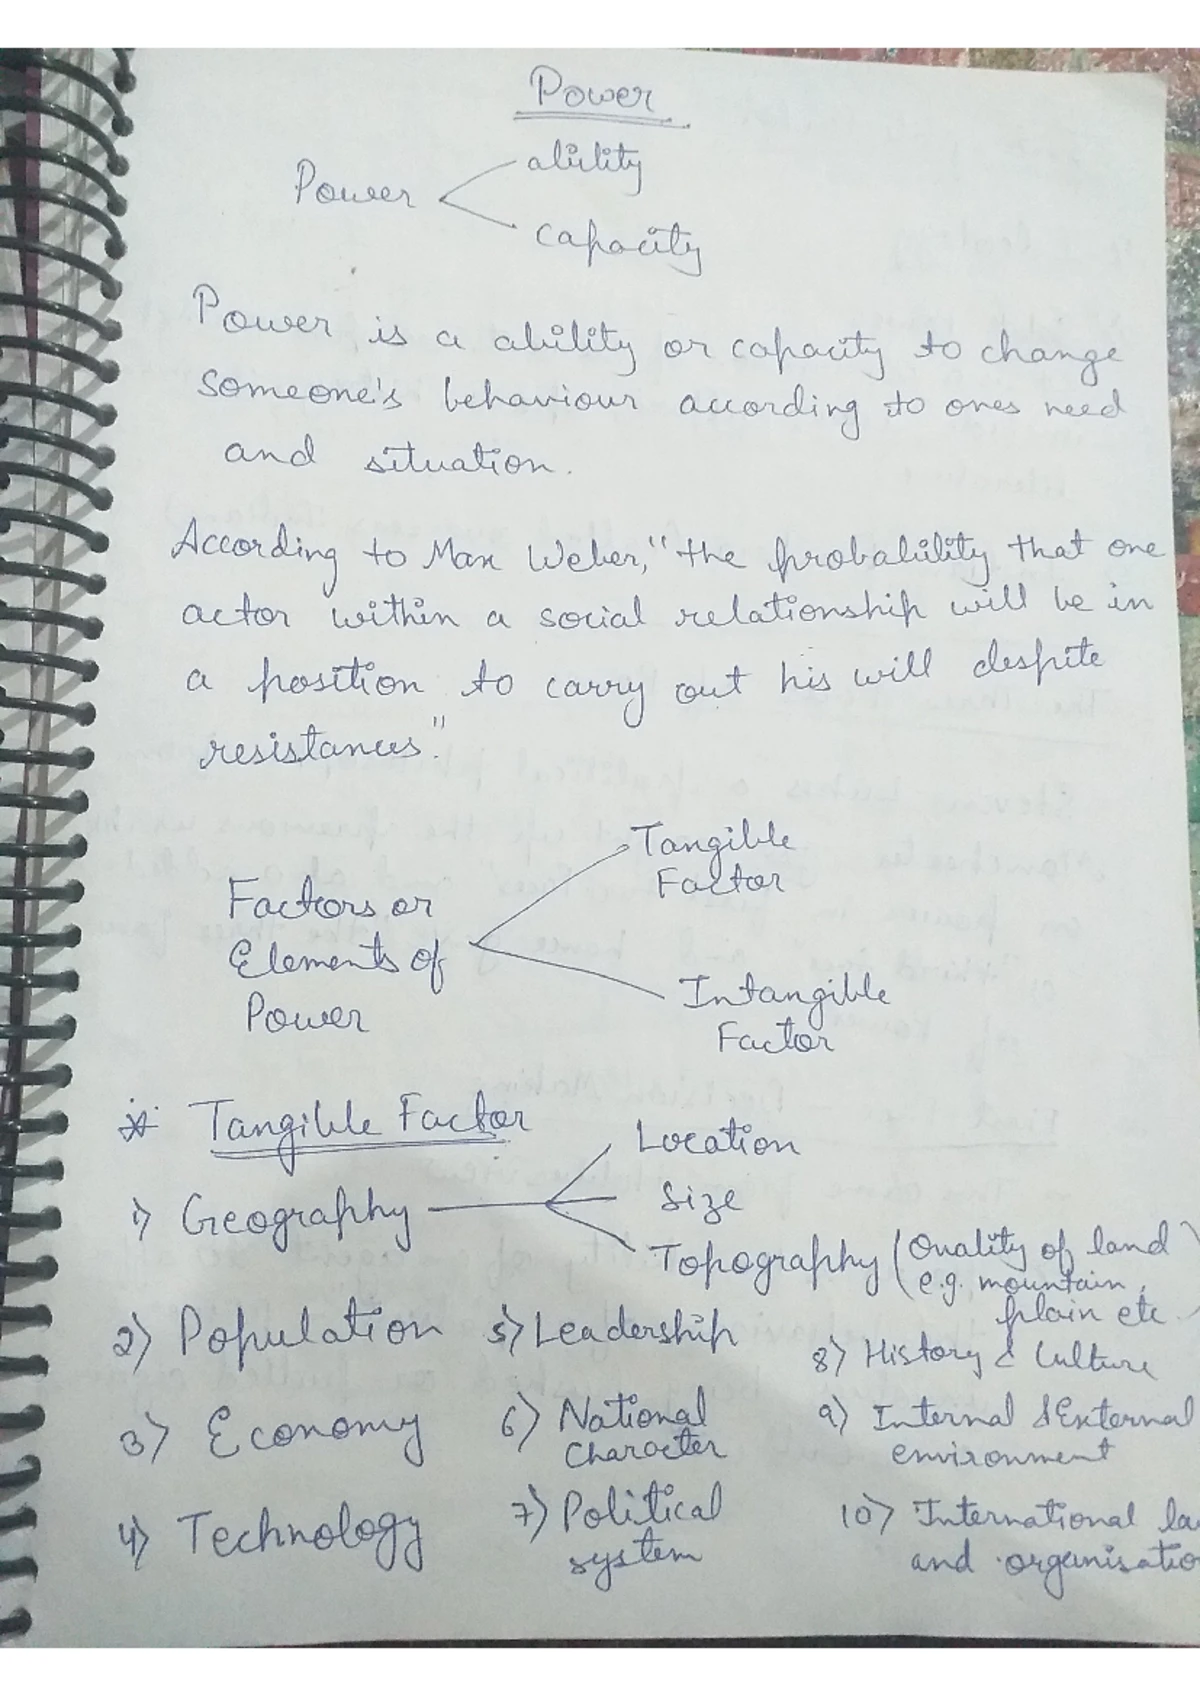 Power
Power
ability
capacity
Power is a ability or capacity to change
someone's behaviour according to ones need
and situation.
According to Max Weber, "the probability that one
actor within a social relationship will be in
a position to carry out his will despite
resistances."
Factors or
Elements of
Power
Tangible
Factor
Intangible
Factor
* Tangible Factor
1) Geography
Location
Size
Topography (Quality of land
e.g. mountain,
plain etc.)
2) Population
3) Economy
4) Technology
5) Leadership
6) National
Character
7) Political
system
8) History & Culture
9) Internal & External
environment
10) International la
and organisatio